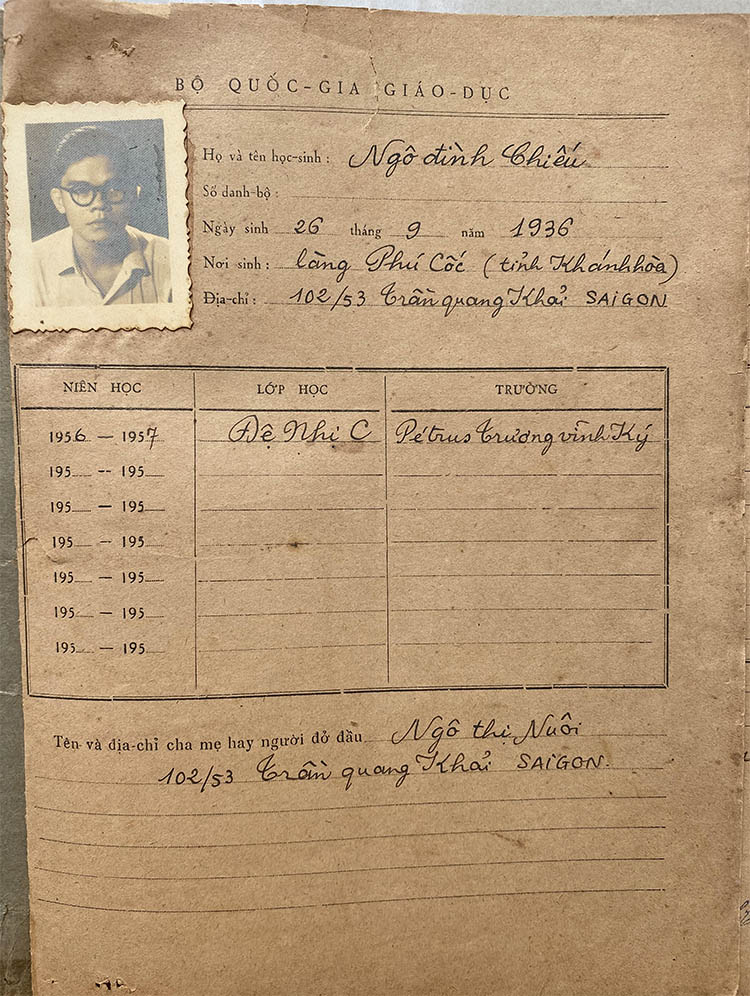 BỘ QUỐC-GIA GIÁO-DỤC
Họ và tên học-sinh : Ngô đình Chiếu
Số danh-bộ :
Ngày sinh 26 tháng 9 năm 1936
Nơi sinh : làng Phú Cốc (tỉnh Khánhhòa)
Địa-chỉ : 102/53 Trần quang Khải SAIGON
NIÊN HỌC LỚP HỌC TRƯỜNG
1956 — 1957 Đệ Nhị C Pétrus Trương vĩnh Ký
195 -- 195
195 — 195
195 — 195
195 — 195
195 — 195
195 — 195
Tên và địa-chỉ cha mẹ hay người đở đầu Ngô thị Nuôi
102/53 Trần quang Khải SAIGON.